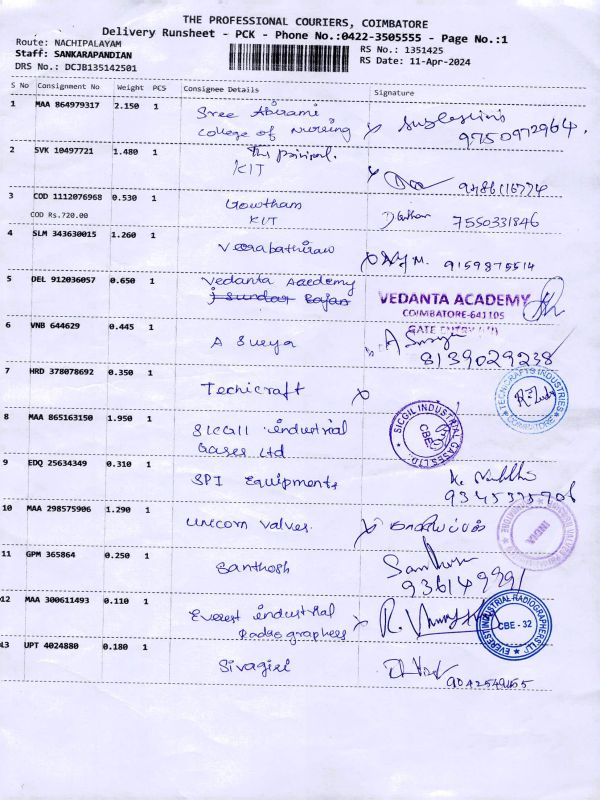 THE PROFESSIONAL COURIERS, COIMBATORE
Delivery Runsheet - PCK - Phone No.:0422-3505555 - Page No.:1
Route: NACHIPALAYAM
RS No.: 1351425
Staff: SANKARAPANDIAN
RS Date: 11-Apr-2024
DRS No.: DCJB135142501
S No Consignment No Weight PCS Consignee Details Signature
1 MAA 864979317 2.150 1 Sree Abirami
College of Nursing
9750972964.
2 SVK 10497721 1.480 1 The principal.
KIT
3 COD 1112076968 0.530 1 Gowtham
COD Rs.720.00 KIT 7550331846
4 SLM 343630015 1.260 1 Veerabathiran
9159875514
5 DEL 912036057 0.650 1 Vedanta Academy
VEDANTA ACADEMY
COIMBATORE-641105
6 VNB 644629 0.445 1 A Surya A Surya
8139029238
7 HRD 378078692 0.350 1 Techicraft
TECHICRAFTS INDUSTRIES
COIMBATORE
8 MAA 865163150 1.950 1 Sicgil industrial
Gases Ltd
SICGIL INDUSTRIAL GASES LTD.
CBE
9 EDQ 25634349 0.310 1 SPI Equipments
9345375706
10 MAA 298575906 1.290 1 unicorn valves.
INDIA
11 GPM 365864 0.250 1 Santhosh Santhosh
12 MAA 300611493 0.110 1 Everest industrial
Radiographers
EVEREST INDUSTRIAL RADIOGRAPHERS LLP
CBE - 32
13 UPT 4024880 0.180 1 Sivagiri